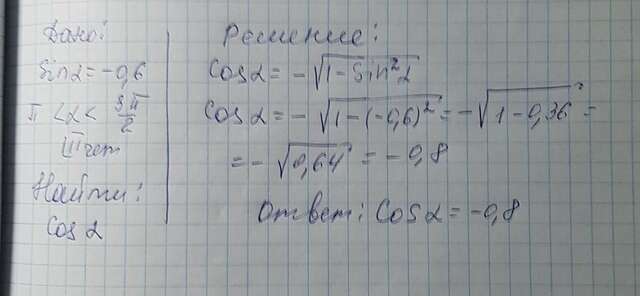 Дано:
Sinα = -0,6
π < α < 3π/2
III чет
Найти:
Cos α
Решение:
Cosα = -√(1 - Sin²α)
Cosα = -√(1-(-0,6)²) = -√(1-0,36) =
= -√0,64 = -0,8
Ответ: Cosα = -0,8